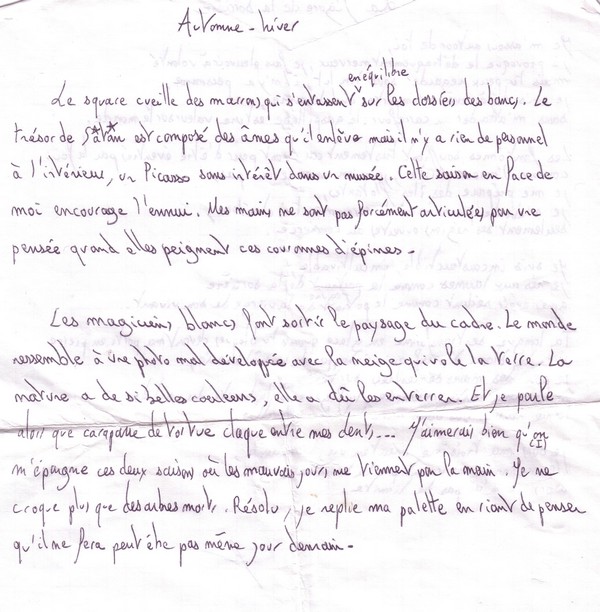 Automne - hiver
en équilibre
Le square cueille des marrons qui s'entassent sur les dossiers des bancs. Le
trésor de S*at*an est composé des âmes qu'il enlève mais il n'y a rien de personnel
à l'intérieur, un Picasso sans intérêt dans un musée. Cette saison en face de
moi encourage l'ennui. Mes mains ne sont pas forcément articulées par une
pensée quand elles peignent ces couronnes d'épines -
Les magiciens blancs font sortir le paysage du cadre. Le monde
ressemble à une photo mal développée avec la neige qui vole la terre. La
nature a de si belles couleurs, elle a dû les enterrer. Et je parle
alors que carapace de tortue claque entre mes dents... J'aimerais bien qu'on
m'épargne ces deux saisons où les mauvais jours me tiennent par la main. Je ne
croque plus que des arbres morts. Résolu, je replie ma palette en riant de penser
qu'il ne fera peut être pas même jour demain -